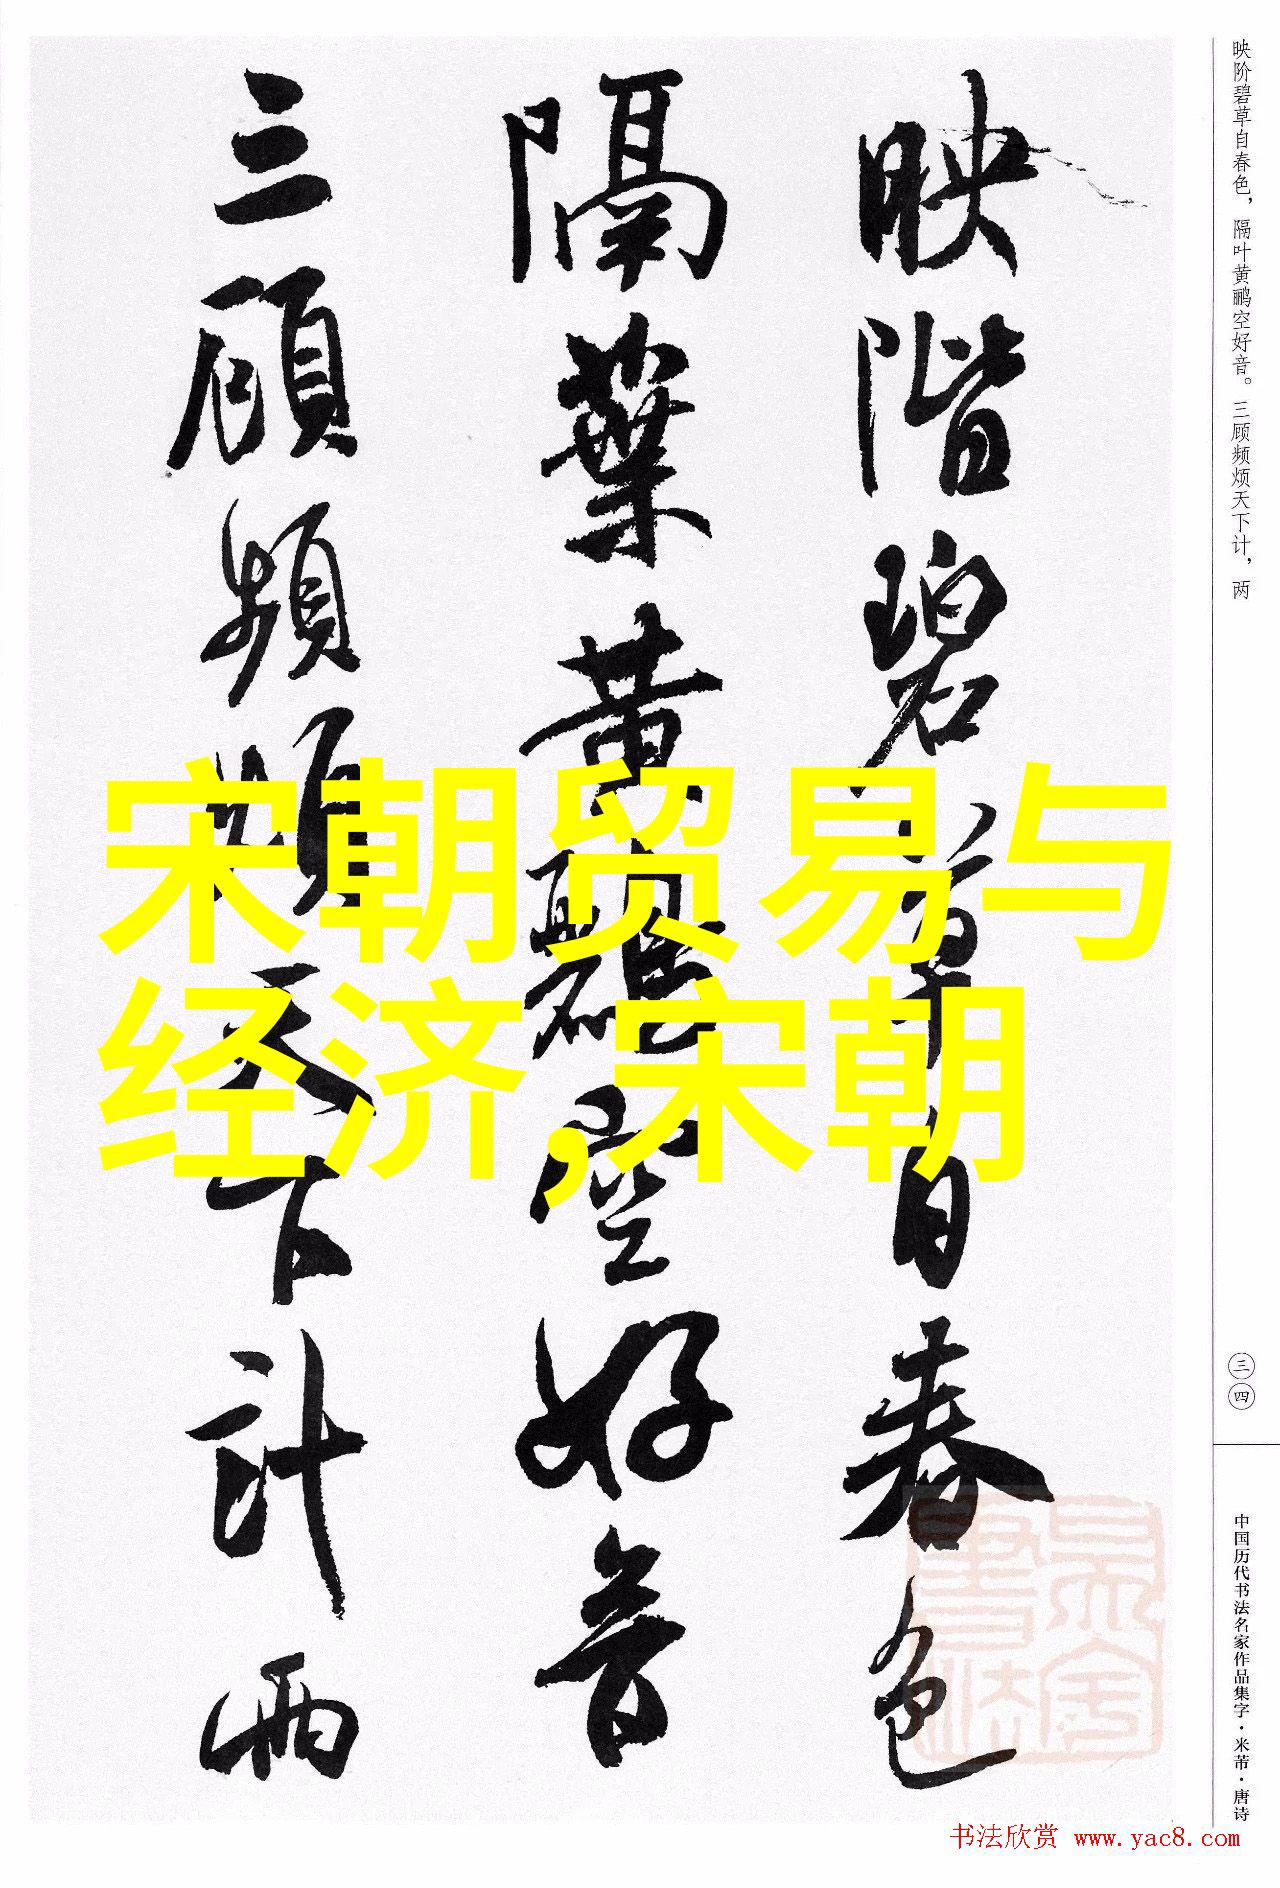 映階碧草自春色
隔葉黄鸝空好音
三顧頻煩天下計兩
宋朝贸易与
经济,宋朝
映阶碧草自春色，隔叶黄鹂空好音。三顾频烦天下计，两
三四
中国历代书法名家作品集字·米芾·唐诗
书法欣赏 www.yac8.com